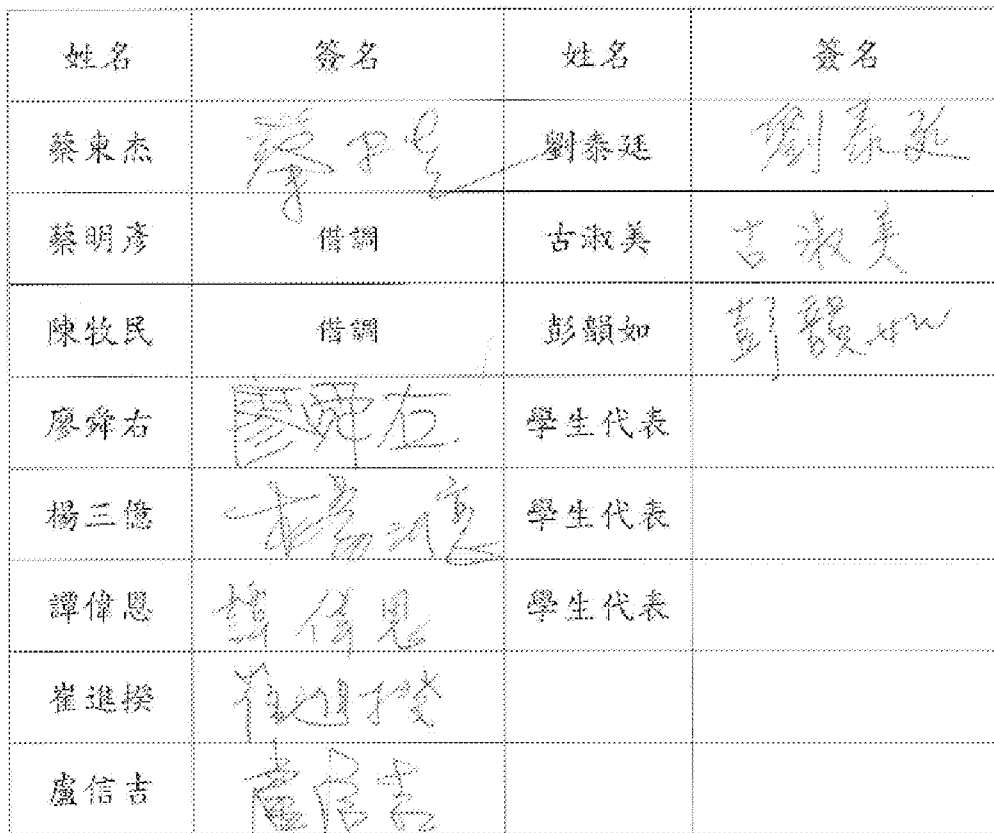 姓名 簽名 姓名 簽名
蔡東杰 蔡東杰 劉泰廷 劉泰廷
蔡明彥 借調 古淑美 古淑美
陳牧民 借調 彭韻如 彭韻如
廖舜右 廖舜右 學生代表
楊三億 楊三億 學生代表
譚偉恩 譚偉恩 學生代表
崔進揆 崔進揆
盧信吉 盧信吉